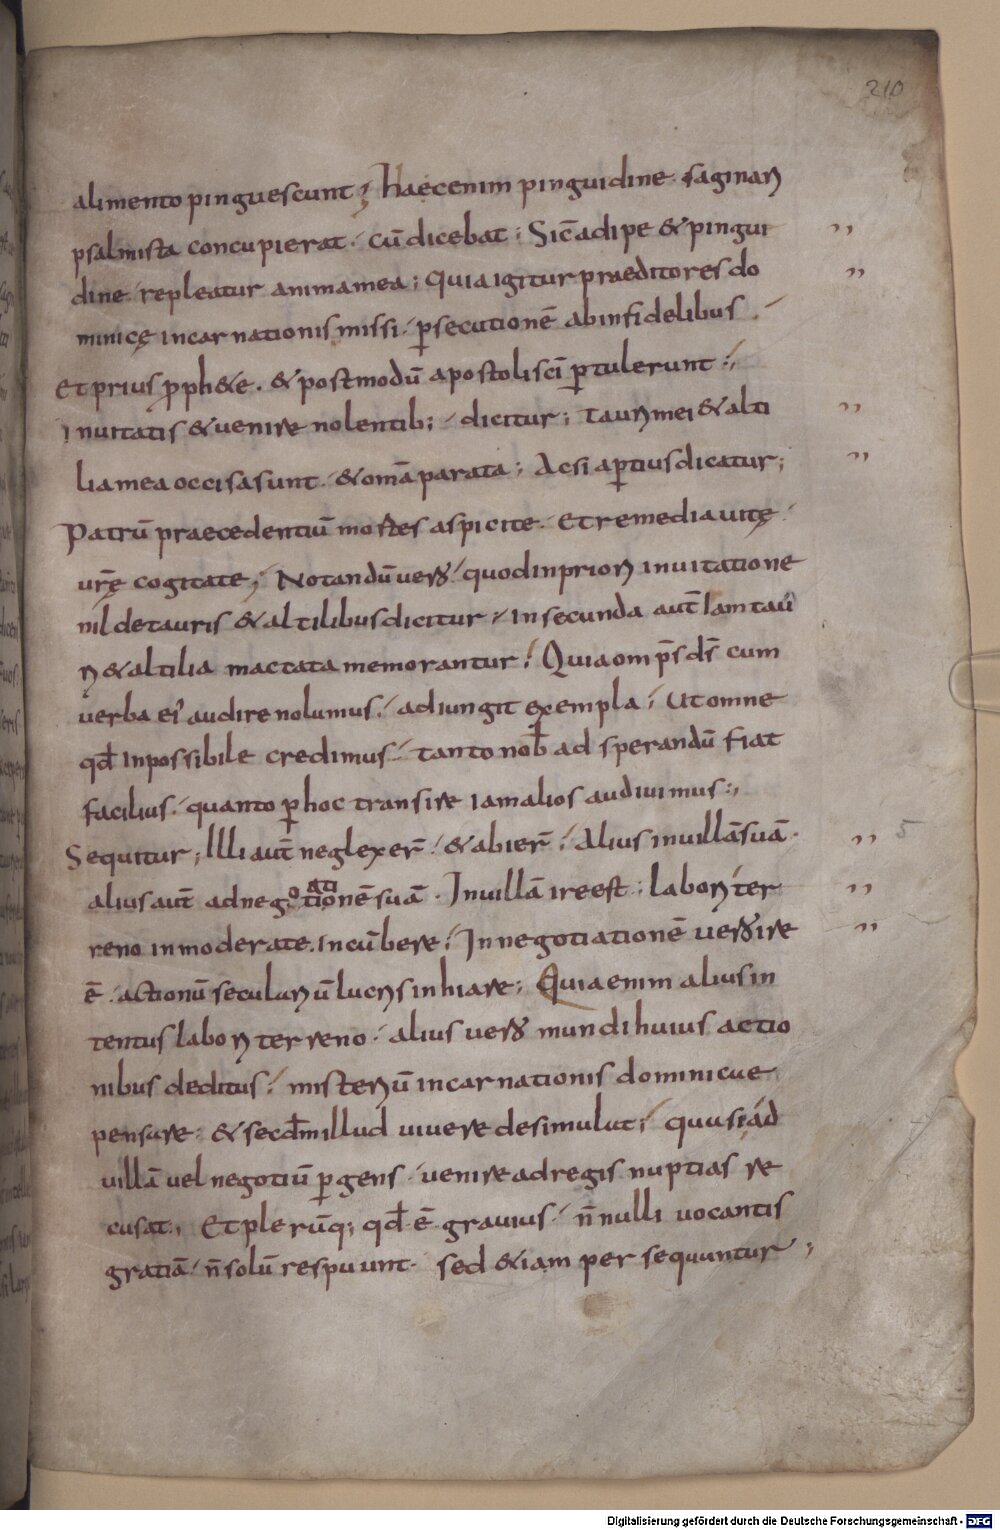 210
alimento pinguescunt; Haec enim pinguidine saginari
psalmista concupierat. cū dicebat; Sic̄ adipe & pingui
dine repleatur anima mea; Quia igitur praeditores do
minicę incarnationis missi. p̱secutionē ab infidelibus.
Et prius p̱ph&e. & postmodū apostoli sc̄i p̱tulerunt;
Inuitatis & uenire nolentib; dicitur; Tauri mei & alti
lia mea occisa sunt. & om̄a parata; Ac si ap̱tius dicatur;
Patrū praecedentiū mortes aspicite. Et remedia uitę
ur̄ę cogitate; Notandū uero quod in priori inuitatione
nil de tauris & altilibus dicitur. In secunda aut̄ iam tau
ri & altilia mactata memorantur; Quia om̄ps ds̄ cum
uerba ei' audire nolumus. adiungit exempla; Ut omne
qd̄ inpossibile credimus. tanto nob̄ ad sperandū fiat
facilius. quanto p̱ hoc transire iam alios audiuimus;
Sequitur; Illi aut̄ neglexer̄. & abier̄; Alius in uillā suā.
alius aut̄ ad negotiationē suā. In uillā ire est; labori ter
reno inmoderate incūbere; In negotiationē uero ire
ē. actionū seculariū lucris inhiare; Quia enim alius in
tentus labori terreno. alius uero mundi huius actio
nibus deditus. misteriū incarnationis dominicae
pensare. & secd̄m illud uiuere desimulat; quasi ad
uillā uel negotiū p̱gens. uenire ad regis nuptias re
cusat; Et plerūq; qd̄ ē grauius. n̄nulli uocantis
gratiā. n̄ solū respuunt. sed &iam persequuntur;
Digitalisierung gefördert durch die Deutsche Forschungsgemeinschaft - DFG